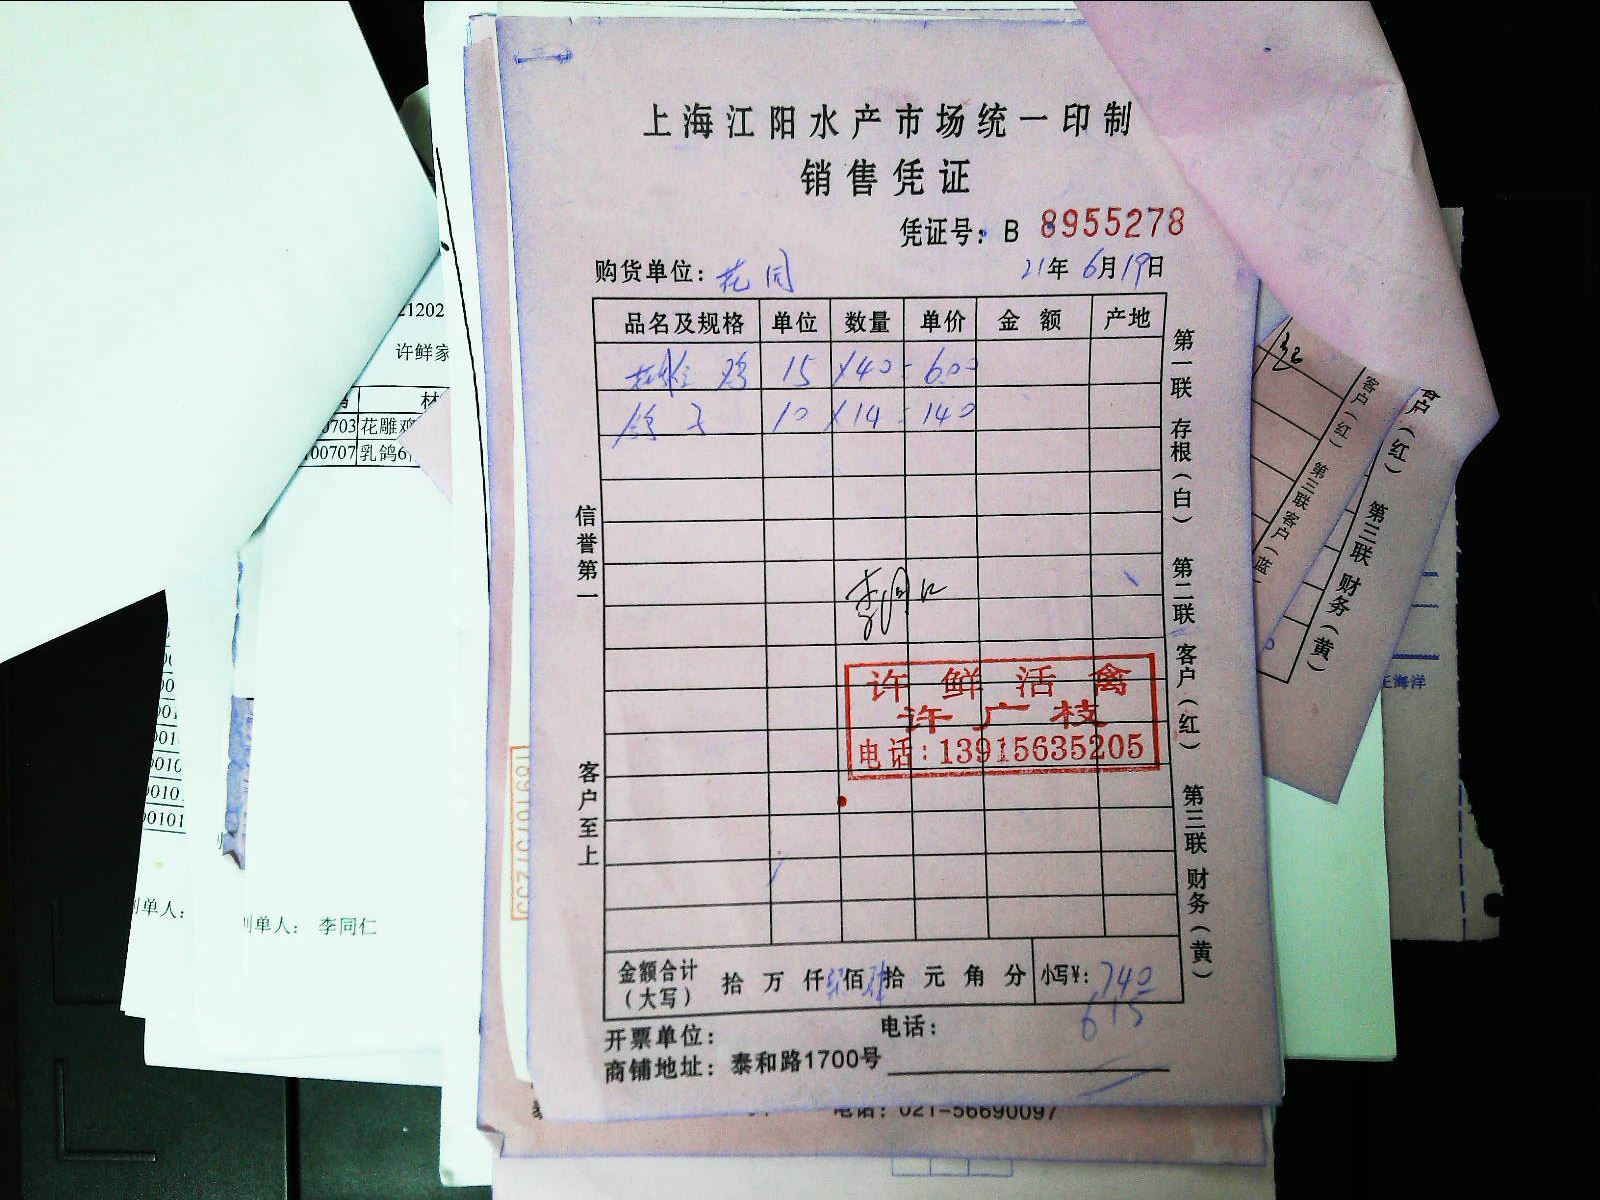 上海江阳水产市场统一印制
销售凭证
凭证号: B 8955278
购货单位: 花同 21年6月19日
品名及规格 单位 数量 单价 金额 产地
鸡 15 ×40=600
鸽子 10 ×14=140
第一联 存根（白） 第二联 客户（红） 第三联 财务（黄）
信誉第一
客户至上
李同仁
许鲜活禽
许广枝
电话:13915635205
金额合计（大写） 拾 万 仟 佰 拾 元 角 分 小写¥: 740
615
开票单位: 电话:
商铺地址: 泰和路1700号
电话: 021-56690097
21202
许鲜家
材
0703 花雕鸡
00707 乳鸽6
001
0010
00101
单人:
单人: 李同仁
客户（红） 第三联 客户（蓝
客户（红） 第三联 财务（黄）
海洋